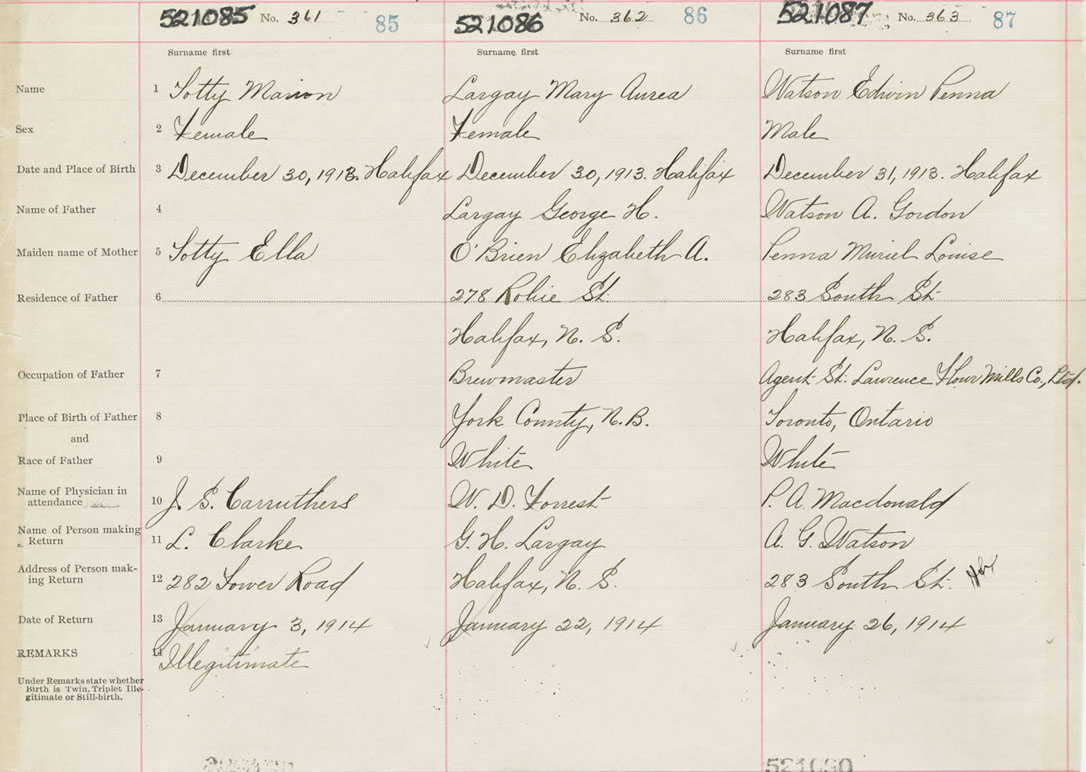 521085 No. 361 85 521086 No. 362 86 521087 No. 363 87
Surname first Surname first Surname first
Name 1 Totty Marion Largay Mary Aurea Watson Edwin Penna
Sex 2 Female Female Male
Date and Place of Birth 3 December 30, 1913. Halifax December 30, 1913. Halifax December 31, 1913. Halifax
Name of Father 4 Largay George H. Watson A. Gordon
Maiden name of Mother 5 Totty Ella O'Brien Elizabeth A. Penna Muriel Louise
Residence of Father 6 278 Robie St. 283 South St.
Halifax, N. S. Halifax, N. S.
Occupation of Father 7 Brewmaster Agent St. Lawrence Flour Mills Co., Ltd.
Place of Birth of Father 8 York County, N.B. Toronto, Ontario
and
Race of Father 9 White White
Name of Physician in
attendance 10 J. S. Carruthers W. D. Forrest P. A. Macdonald
Name of Person making
Return 11 L. Clarke G. H. Largay A. G. Watson
Address of Person mak-
ing Return 12 282 Tower Road Halifax, N. S. 283 South St. Hx
Date of Return 13 January 3, 1914 January 22, 1914 January 26, 1914
REMARKS 14 Illegitimate
Under Remarks state whether
Birth is Twin, Triplet Ille-
gitimate or Still-birth.
521090